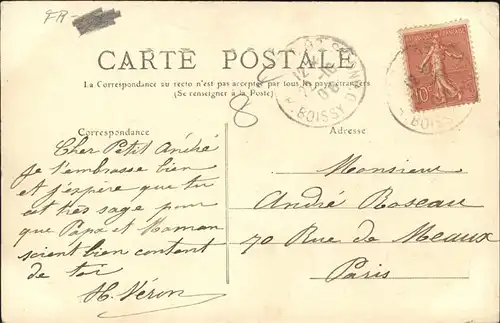 FR-
CARTE POSTALE
La Correspondance au recto n'est pas acceptée par tous les pays étrangers
(Se renseigner à la Poste)
8
BOISSY
10
BOISSY
Correspondance
Adresse
Cher Petit André
Je t'embrasse bien
et j'espère que tu
est très sage pour
que Papa et Maman
soient bien content
de toi
H. Véron
Monsieur
André Roseau
70 Rue de Meaux
Paris